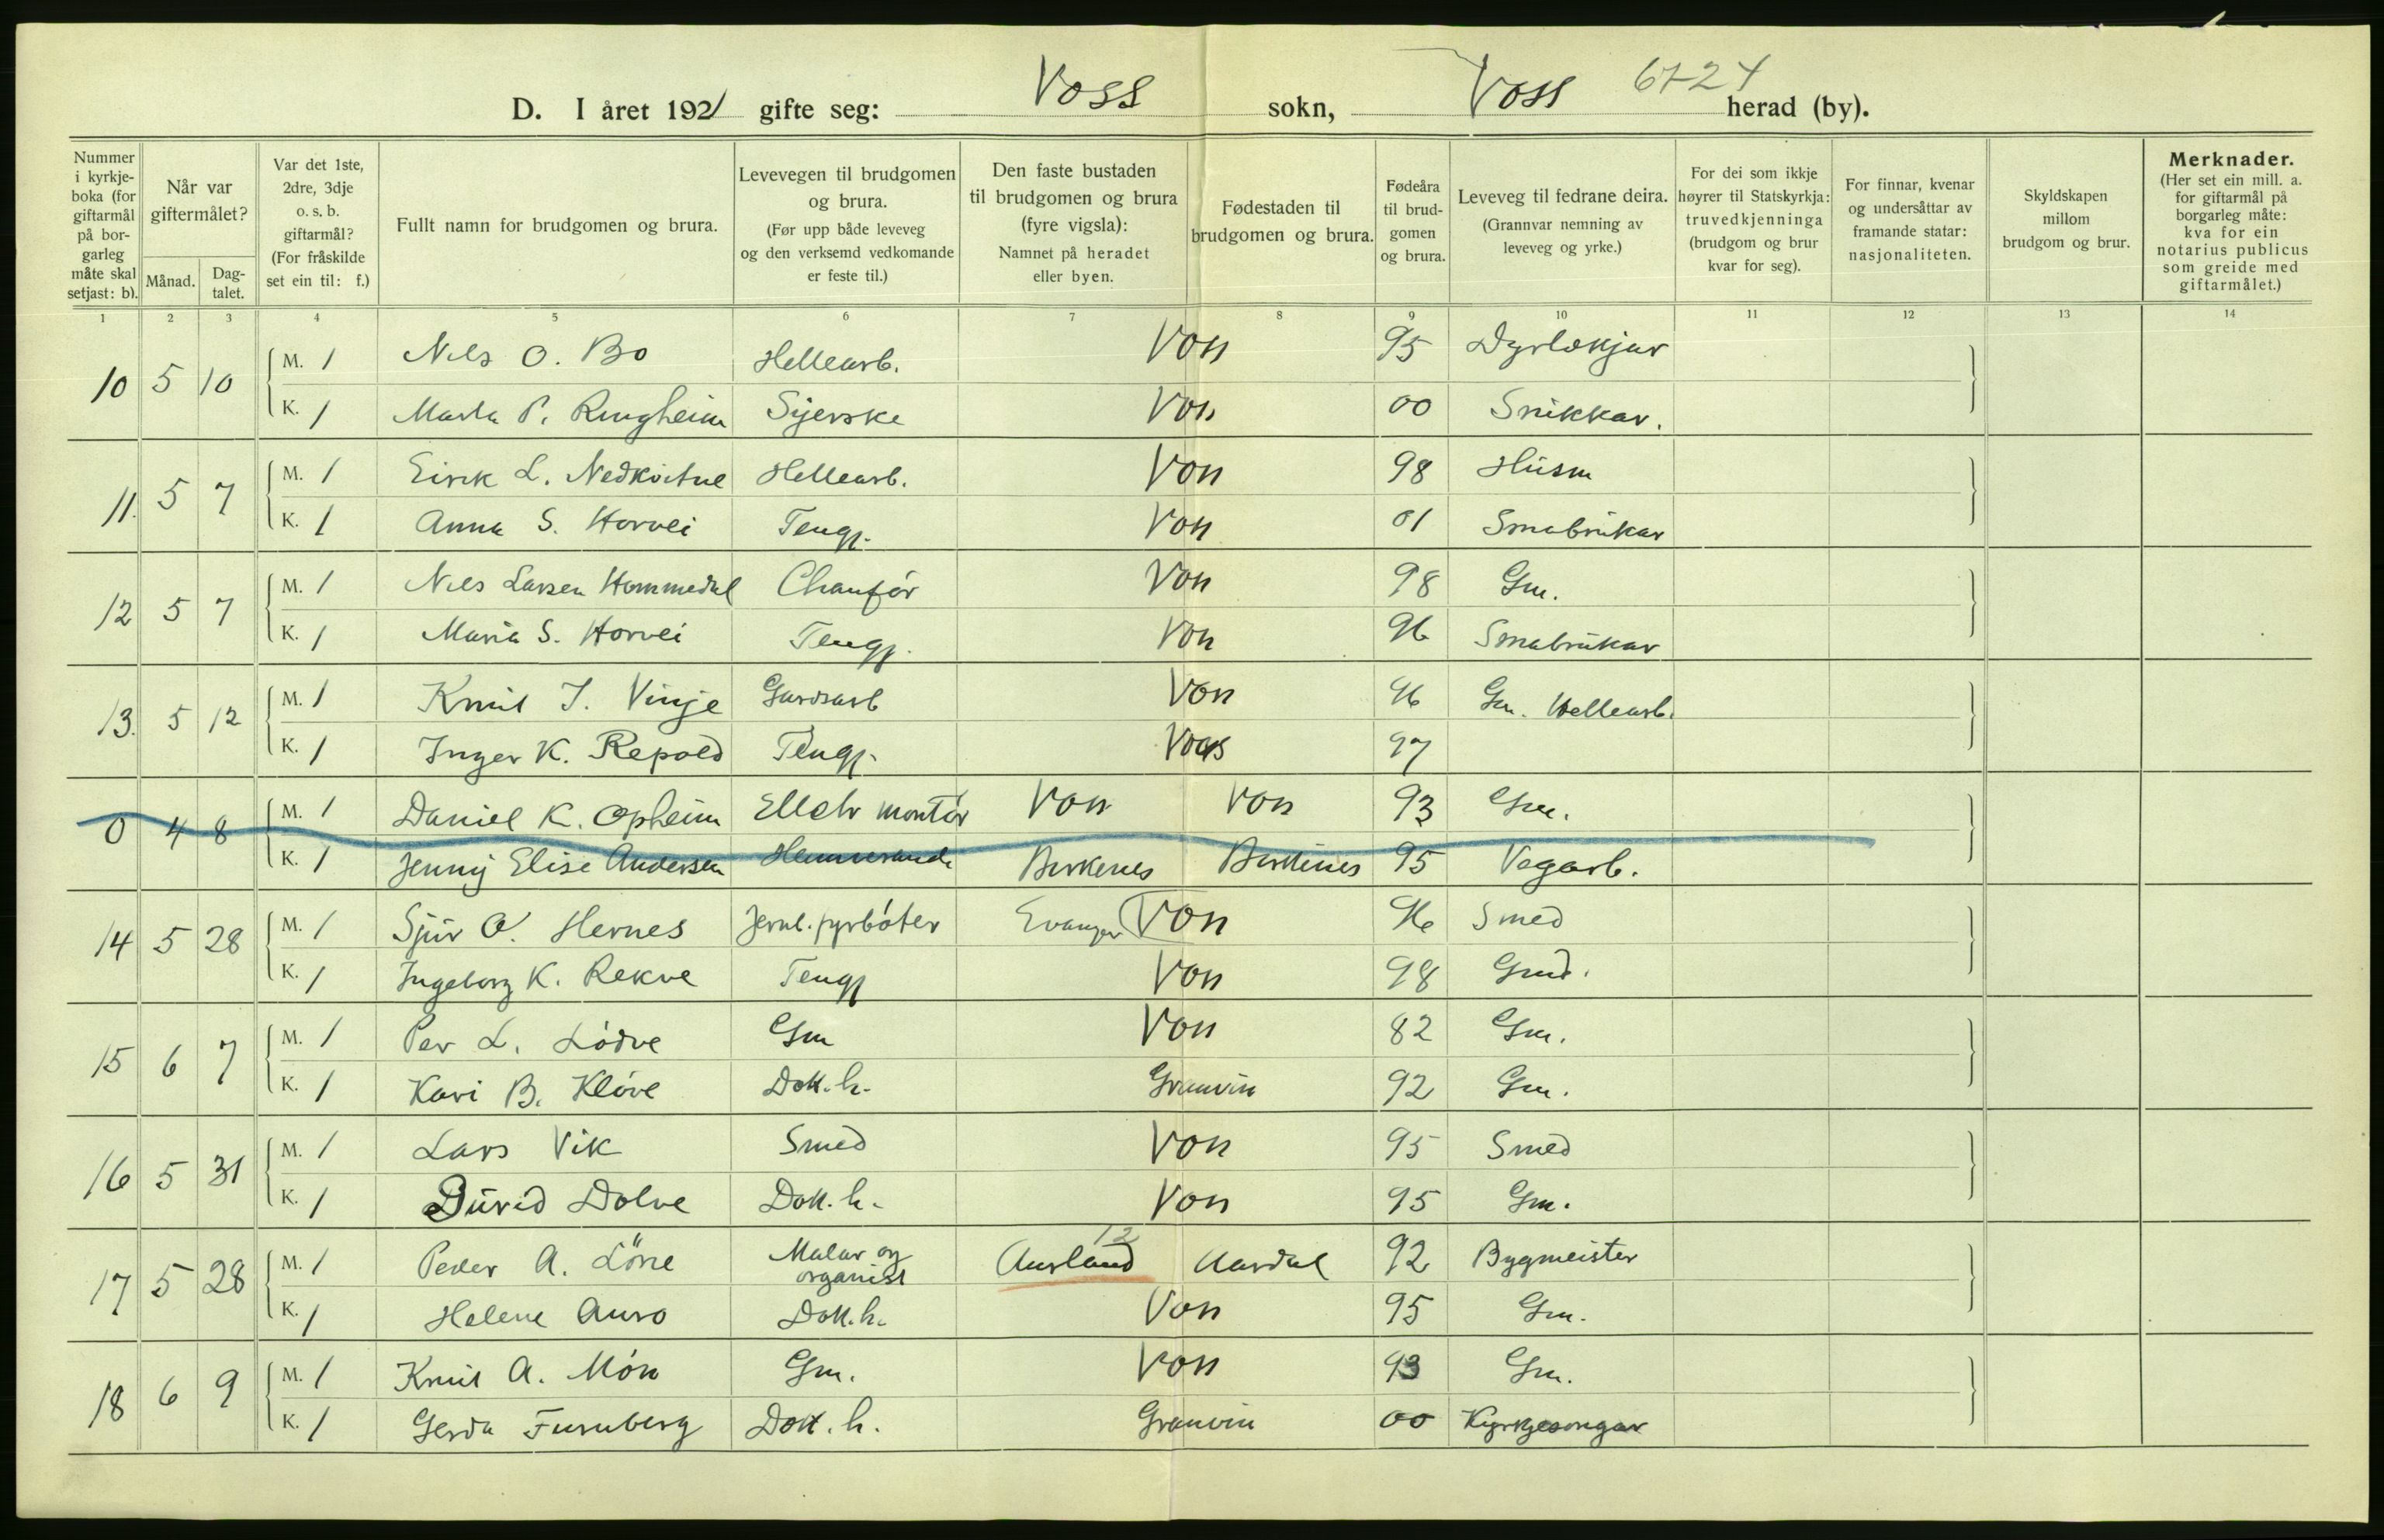 Voss Voss 6724
D. I året 1921 gifte seg: sokn, herad (by).
Nummer i kyrkje-boka (for giftarmål på bor-garleg måte skal setjast: b).
Når var giftermålet?
Månad. Dag-talet.
Var det 1ste, 2dre, 3dje o. s. b. giftarmål? (For fråskilde set ein til: f.)
Fullt namn for brudgomen og brura.
Levevegen til brudgomen og brura. (Før upp både leveveg og den verksemd vedkomande er feste til.)
Den faste bustaden til brudgomen og brura (fyre vigsla): Namnet på heradet eller byen.
Fødestaden til brudgomen og brura.
Fødeåra til brud-gomen og brura.
Leveveg til fedrane deira. (Grannvar nemning av leveveg og yrke.)
For dei som ikkje høyrer til Statskyrkja: truvedkjenninga (brudgom og brur kvar for seg).
For finnar, kvenar og undersåttar av framande statar: nasjonaliteten.
Skyldskapen millom brudgom og brur.
Merknader. (Her set ein mill. a. for giftarmål på borgarleg måte: kva for ein notarius publicus som greide med giftarmålet.)
1 2 3 4 5 6 7 8 9 10 11 12 13 14
10 5 10 M. 1 Nils O. Bo Hellearb. Voss 95 Dyrlækjar
K. 1 Marta P. Ringheim Syerske Voss 00 Snikkar.
11. 5 7 M. 1 Eirik L. Nedkvitne Hellearb. Voss 98 Husm
K. 1 Anna S. Horvei Tengj. Voss 01 Smabrukar
12 5 7 M. 1 Nils Larsen Hommedal Chaufór Voss 98 Gm.
K. 1 Maria S. Horvei Tengj. Voss 96 Smabrukar
13. 5 12 M. 1 Knut J. Vinje Gardsarb Voss 96 Gm. Hellearb.
K. 1 Inger K. Repold Tengj. Voss 97
0 4 8 M. 1 Daniel K. Opheim Ellektr montór Voss Voss 93 Gm.
K. 1 Jenny Elise Andersen Heimeværande Birkenes Birkenes 95 Vegarb.
14 5 28 M. 1 Sjur O. Hernes Jernb. fyrbóter Evanger Voss 96 Smed
K. 1 Ingeborg K. Rekve Tengj Voss 98 Gmd.
15 6 7 M. 1 Per L. Lódve Gm Voss 82 Gm.
K. 1 Kari B. Klóve Dott. h. Granvin 92 Gm.
16 5 31 M. 1 Lars Vik Smed Voss 95 Smed
K. 1 Durid Dolve Dott. h. Voss 95 Gm.
12
17 5 28 M. 1 Peder A. Löne Malar og organist Aurland Aardal 92 Bygmeister
K. 1 Helene Auro Dott. h. Voss 95 Gm.
18 6 9 M. 1 Knut A. Món Gm. Voss 93 Gm.
K. 1 Gerda Furuberg Dott. h. Granvin 00 Kyrkjesongar